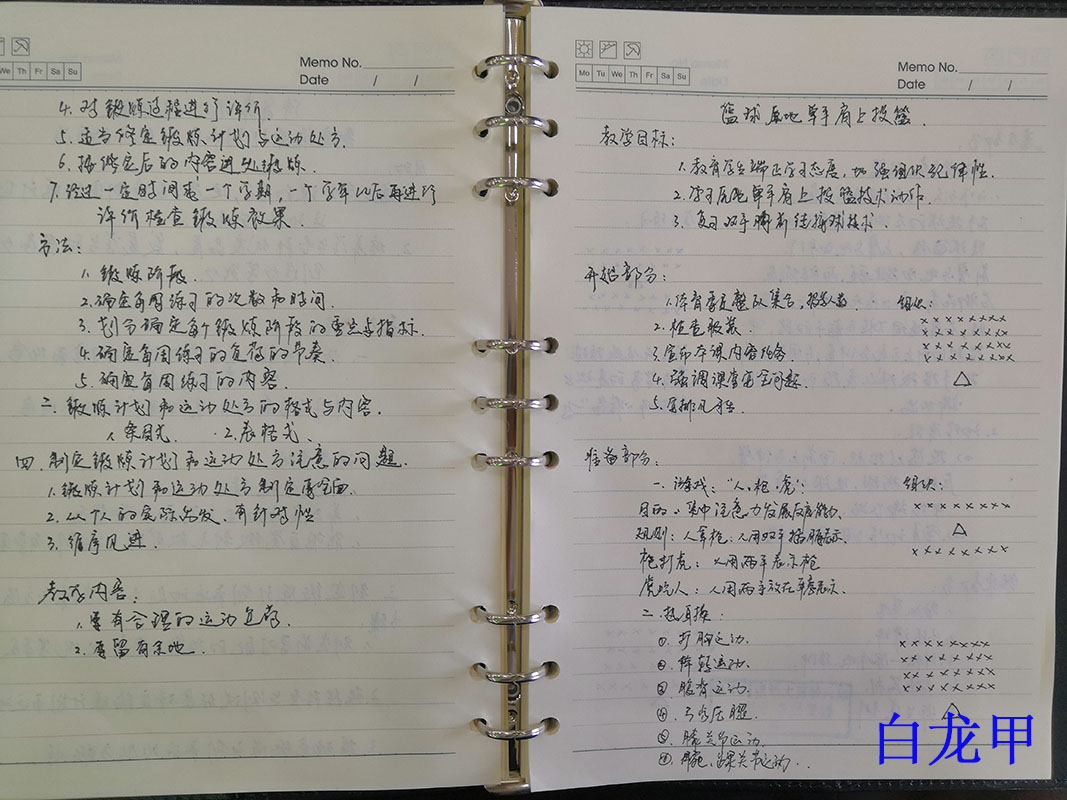 We Th Fr Sa Su
Memo No.
Date / /
4. 对锻炼过程进行评价.
5. 适当修定锻炼计划与运动处方.
6. 按修定后的内容进行锻炼.
7. 经过一定时间或一个学期,一个学年以后再进行
评价检查锻炼效果.
方法:
1. 锻炼阶段.
2. 确定每周练习的次数和时间.
3. 划分确定每个锻炼阶段的重点与指标.
4. 确定每周练习的负荷的节奏.
5. 确定每周练习的内容.
三. 锻炼计划和运动处方的格式与内容.
1. 条目式. 2. 表格式.
四. 制定锻炼计划和运动处方注意的问题.
1. 锻炼计划和运动处方制定要全面.
2. 从个人的实际出发,有针对性
3. 循序渐进.
内容:
1. 要有合理的运动负荷.
2. 要留有余地.
Mo Tu We Th Fr Sa Su
Memo No.
Date / /
篮球原地单手肩上投篮.
教学目标:
1. 教育学生端正学习态度,加强组织纪律性.
2. 学习原地单手肩上投篮技术动作.
3. 复习双手胸前传接球技术.
开始部分:
1. 体育委员整队集合,报告人数 组织:
2. 检查服装
3. 宣布本课内容任务
4. 强调课堂安全问题.
5. 安排见习生.
准备部分:
一. 游戏:"人、枪、虎: 组织:
目的:集中注意力发展反应能力.
规则:人拿枪:人用双手插腰表示.
枪打虎:人用两手表示枪
虎吃人:人用两手放在 表示.
二.
①. 扩胸运动.
②. 体转运动.
③ 腹背运动.
④. 弓步压腿.
⑤. 膝关节运动.
⑥. 腕、踝关节运动.
白龙甲